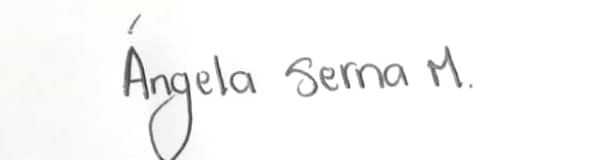 Ángela Serna M.